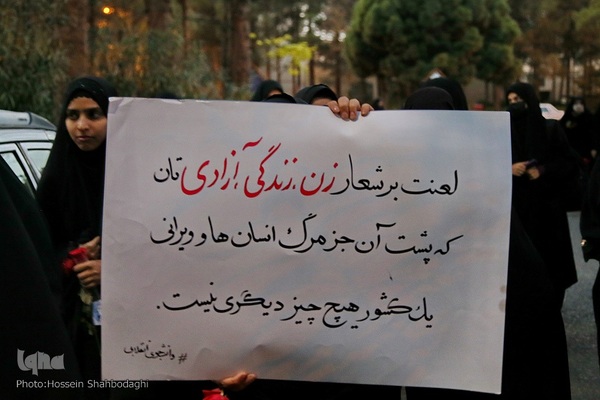 لعنت بر شعار زن، زندگی، آزادی تان
که پشت آن جز مرگ انسان ها و ویرانی
یک کشور هیچ چیز دیگری نیست.
#دانشجوی_انقلابی
iqna
Photo:Hossein Shahbodaghi